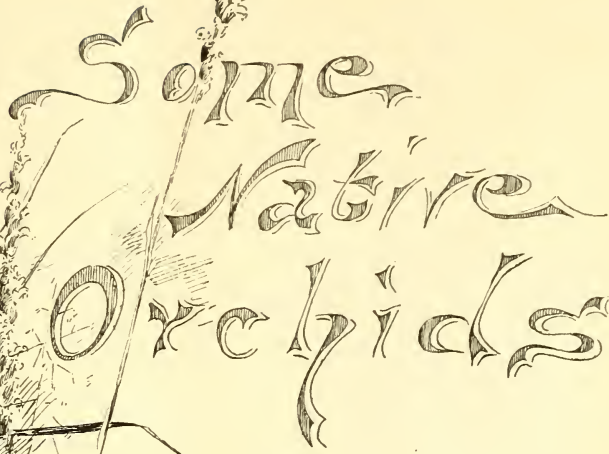 Some
Native
Orchids